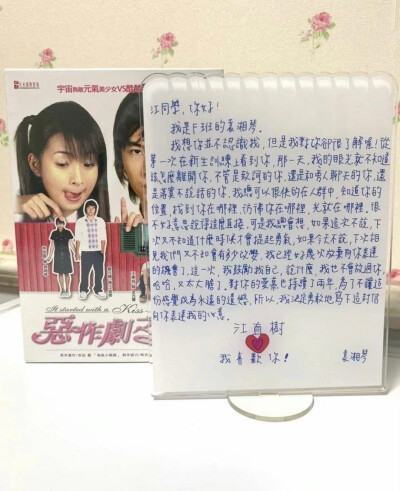 宇宙無敵元氣美少女VS酷酷
It started with a Kiss
惡作劇之
江同學,你好!
我是F班的袁湘琴。
我想你並不認識我,但是我對你卻很了解喔!從
第一次在新生訓練上看到你,那一天,我的眼光就不知道
該怎麼離開你,不管是致詞的你,還是和別人聊天的你,還
是落單不說話的你,我總可以很快的在人群中,知道你的
位置,找到你在哪裡,彷彿你在哪裡,光就在哪裡,很
不好意思說得這麼直接,可是我總會想,如果這次不說,下
次又不知道什麼時候才會提起勇氣,如果今天不說,下次相
見我們又不知會有多少改變,我已經好幾次放棄向你表達
的機會了,這一次,我鼓勵我自己,說什麼,我也不會放過你,
哈哈,又太大膽了,對你的愛慕已持續了兩年,為了不讓這
份感覺成為永遠的遺憾,所以,我決定勇敢地寫下這封信
向你表達我的心意。
江直樹
我喜歡你!
袁湘琴